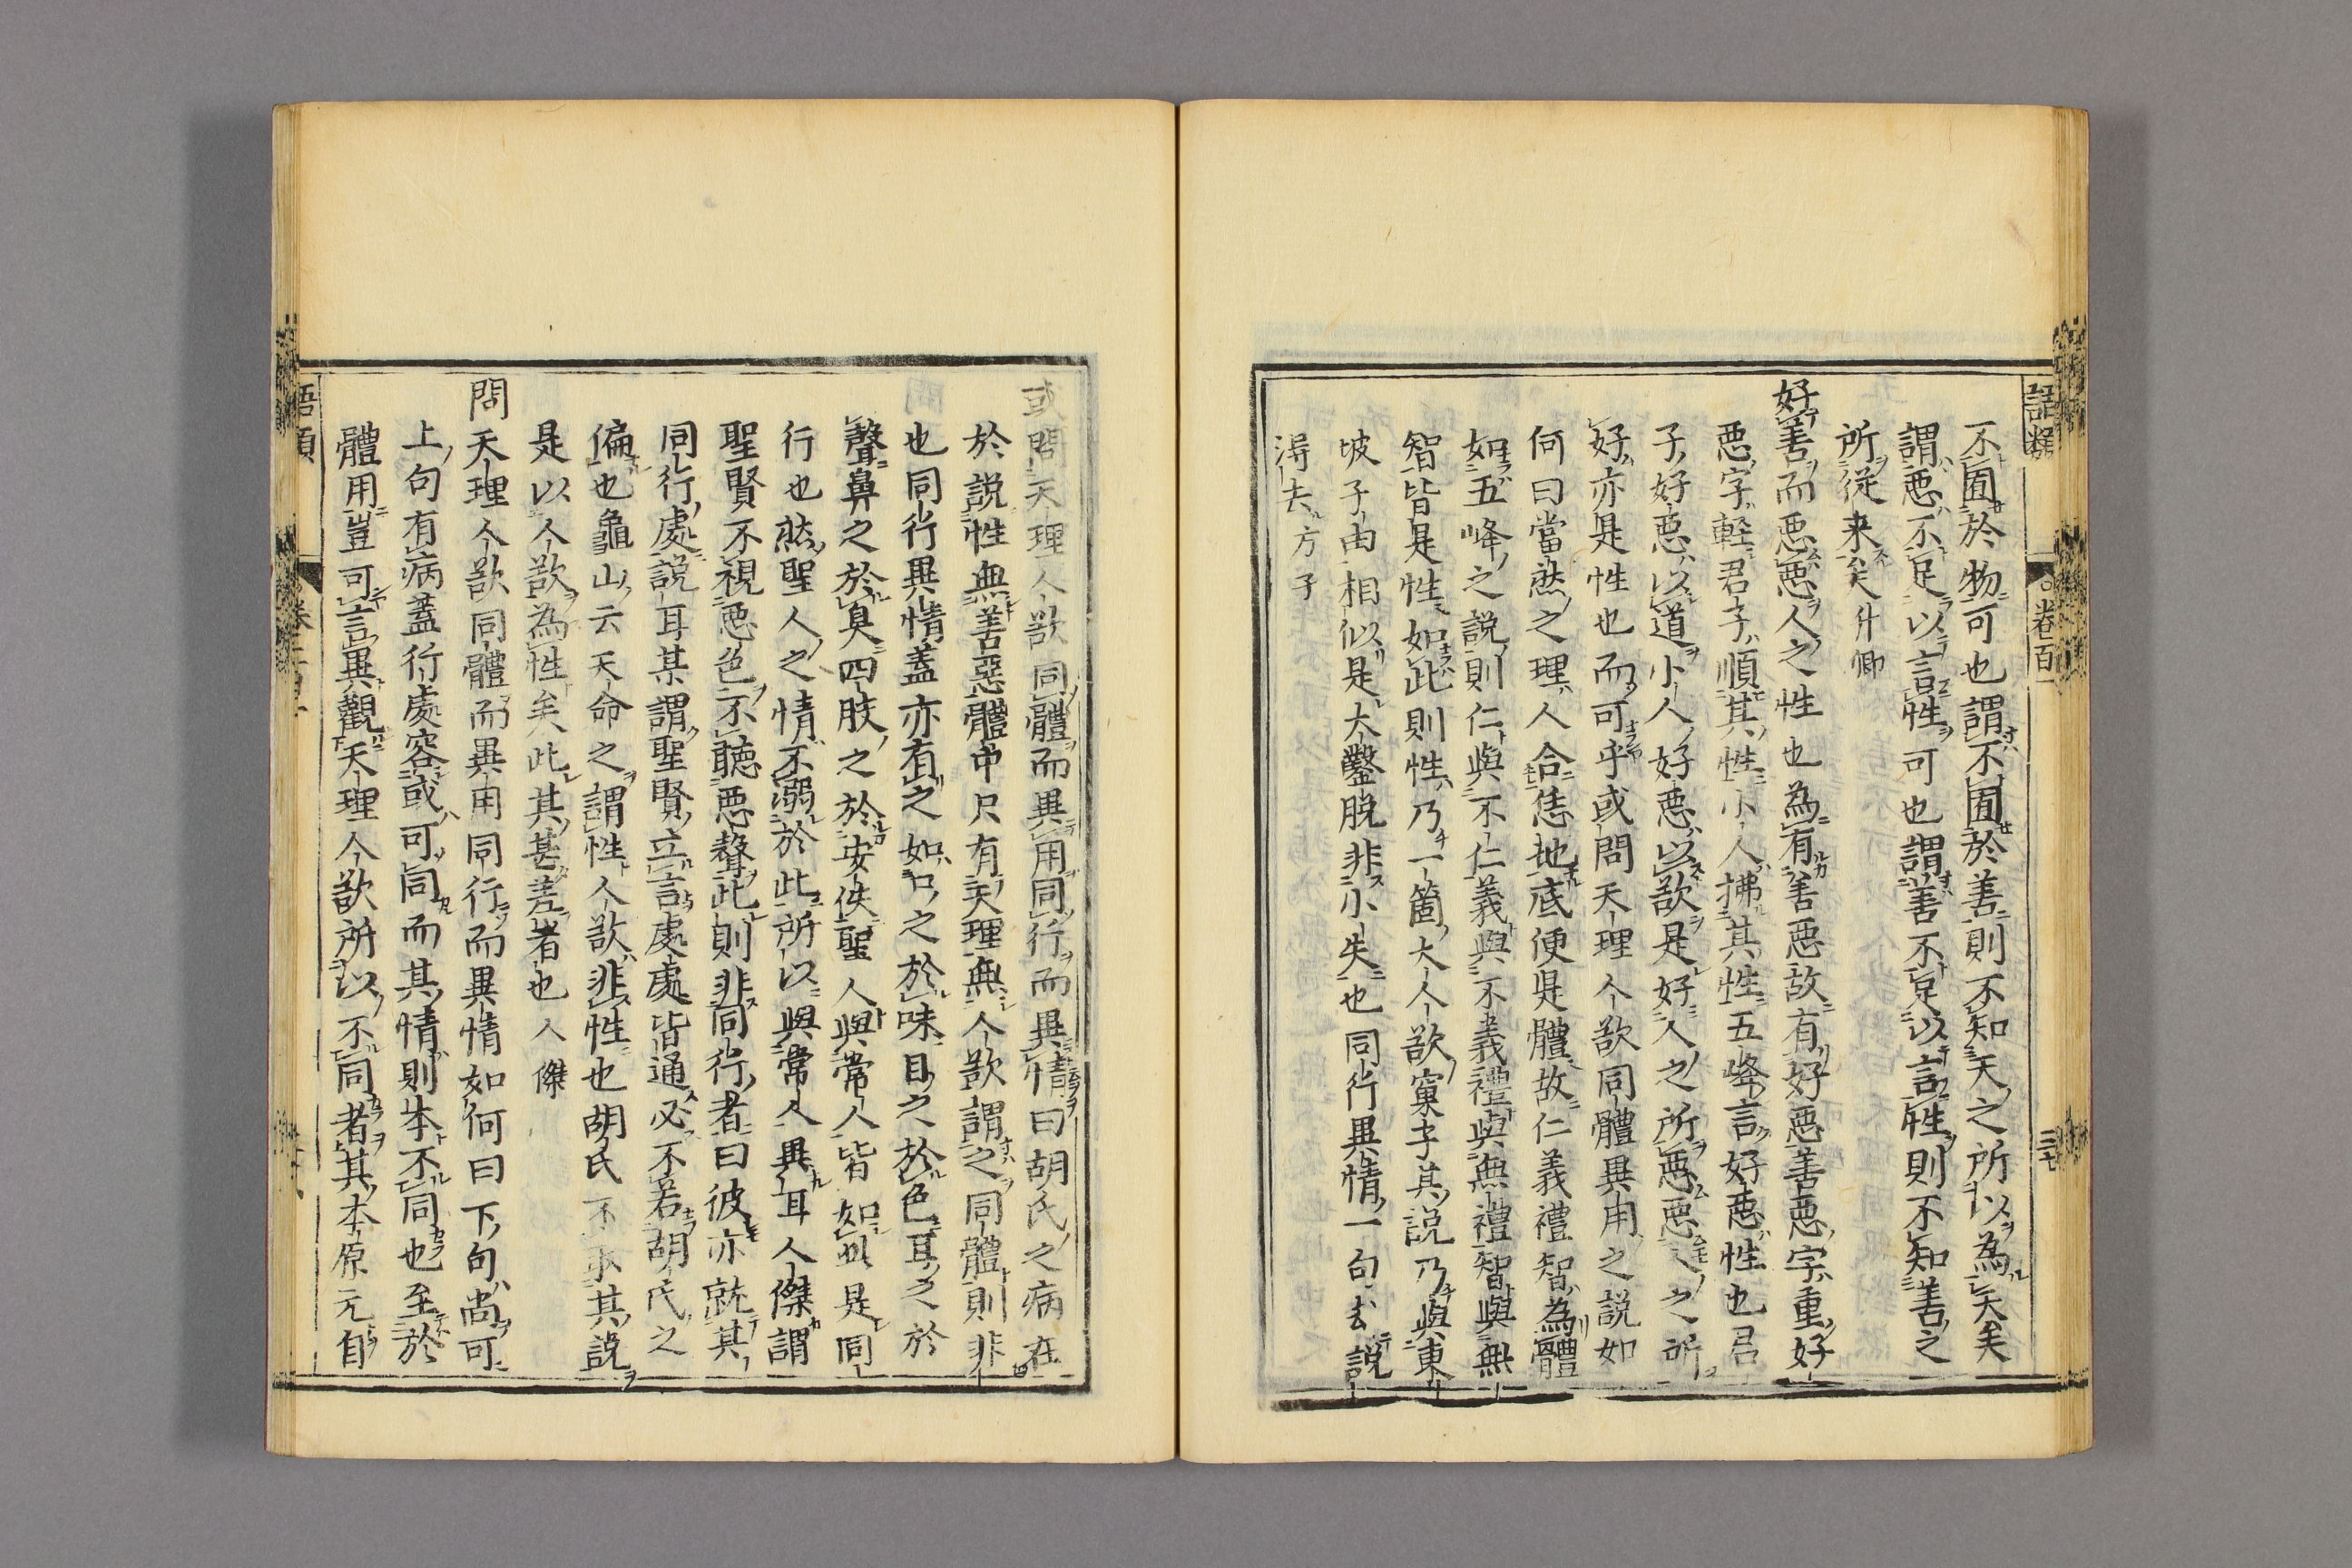 語類
卷百一
三十七
不囿於物可也謂不囿於善則不知天之所以為天矣
謂惡不足以言性可也謂善不足以言性則不知善之
所從来矣升卿
好善而惡惡人之性也為有善惡故有好惡善惡字重好
惡字軽君子順其性小人拂其性五峰言好惡性也君
子好惡以道小人好惡以欲是好人之所惡惡人之所
好亦是性也而可乎或問天理人欲同體異用之説如
何曰當然之理人合恁地底便是體故仁義禮智為體
如五峰之説則仁與不仁義與不義禮與無禮智與無
智皆是性如此則性乃一箇大人欲窠子其説乃與東
坡子由相似是大鑿脱非小失也同行異情一句去説
淂去方子
或問天理人欲同體而異用同行而異情曰胡氏之病在
於説性無善惡體中只有天理無人欲謂之同體則非
也同行異情蓋亦有之如口之於味目之於色耳之於
聲鼻之於臭四肢之於安佚聖人與常人皆如此是同
行也然聖人之情不溺於此所以與常人異耳人傑謂
聖賢不視惡色不聽惡聲此則非同行者曰彼亦就其
同行處説耳某謂聖賢立言處處皆通必不若胡氏之
偏也龜山云天命之謂性人欲非性也胡氏不取其説
是以人欲為性矣此其甚差者也人傑
問天理人欲同體而異用同行而異情如何曰下句尚可
上句有病蓋行處容或可同而其情則本不同也至於
體用豈可言異觀天理人欲所以不同者其本原元自
語類